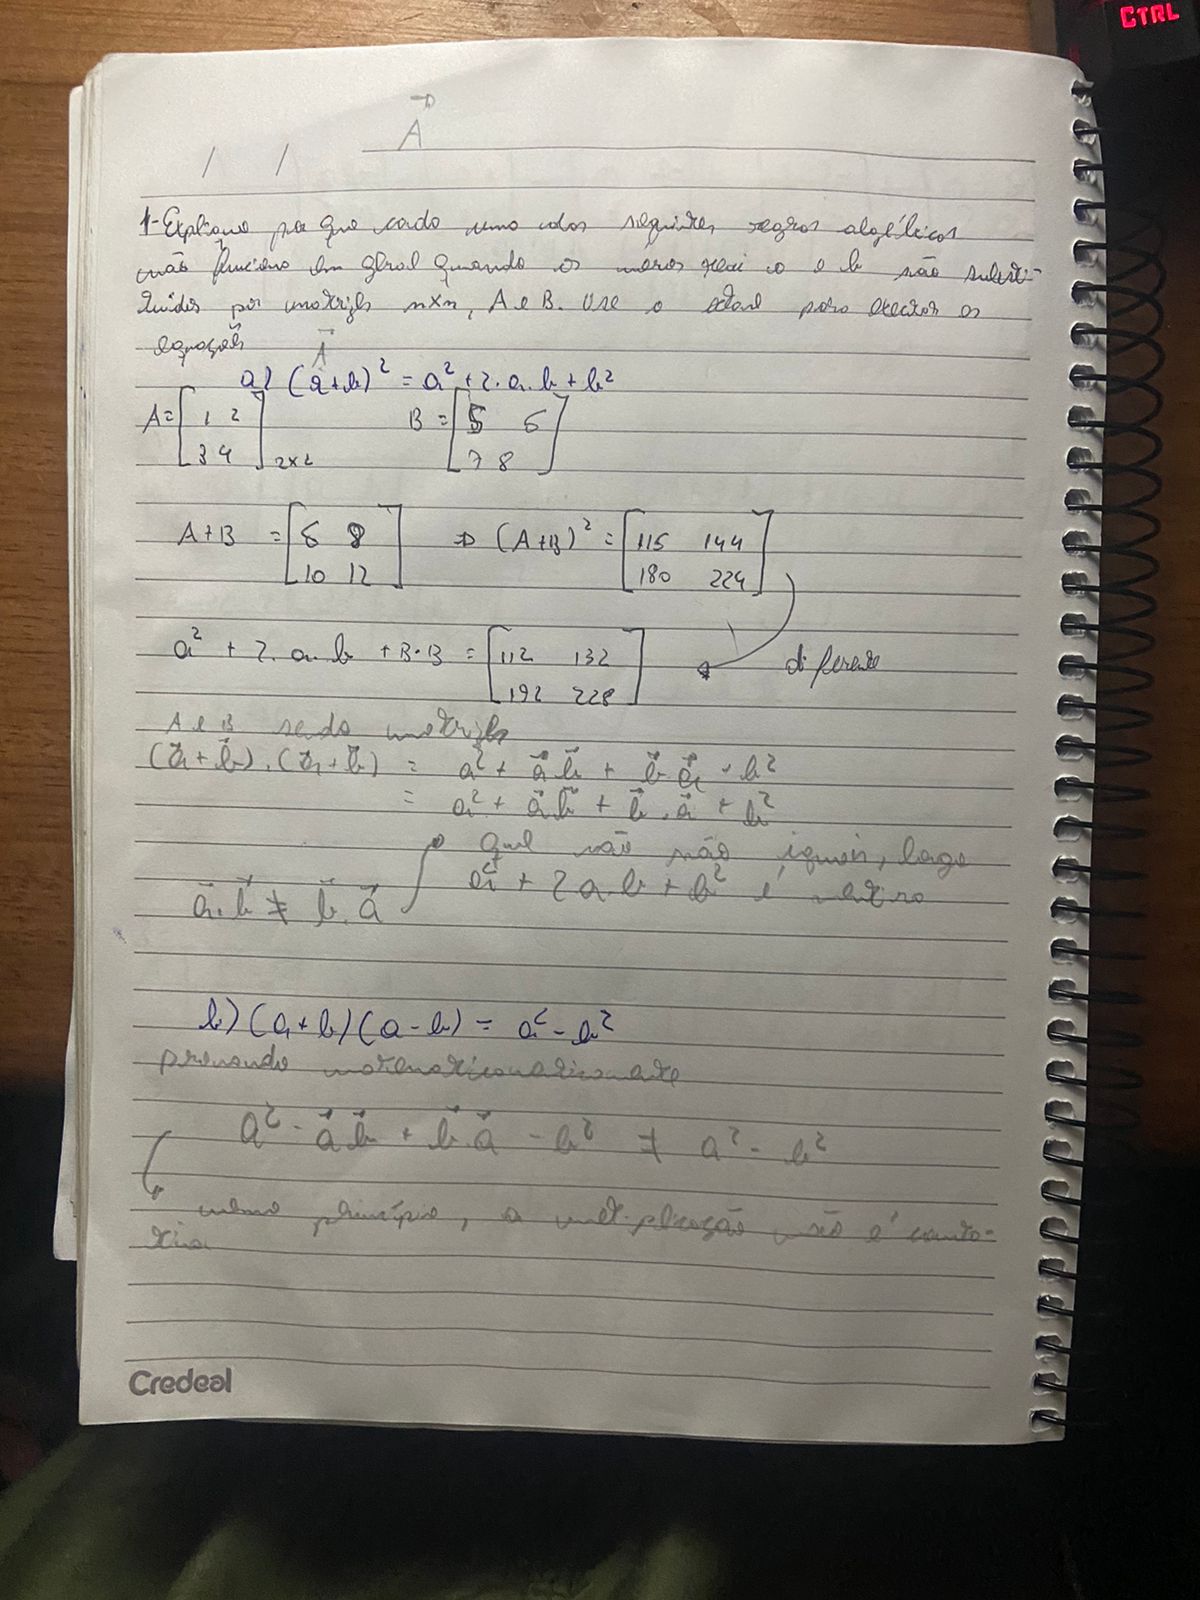 CTRL
A
/ /
1-Explique por que cada uma das seguintes regras algébricas
não funciona em geral quando os números reais a e b são substi-
tuídos por matrizes nxn, A e B. Use o octave para executar as
equações
A
a) (a+b)² = a² + 2.a.b + b²
A = [1 2 B = [5 6
3 4] 2x2 7 8]
A+B = [6 8 ⇒ (A+B)² = [115 144
10 12] 180 224]
a² + 2.a.b + B.B = [112 132 diferente
192 228]
A e B sendo matrizes
(a+b).(a+b) = a² + a b + b a + b²
= a² + a b + b.a + b²
que não são iguais, logo
a.b ≠ b.a a² + 2a.b + b² é
b) (a+b)(a-b) = a² - b²
provando
a² - a b + b.a - b² ≠ a² - b²
mesmo princípio, a multiplicação não é comuta-
tiva
Credeal